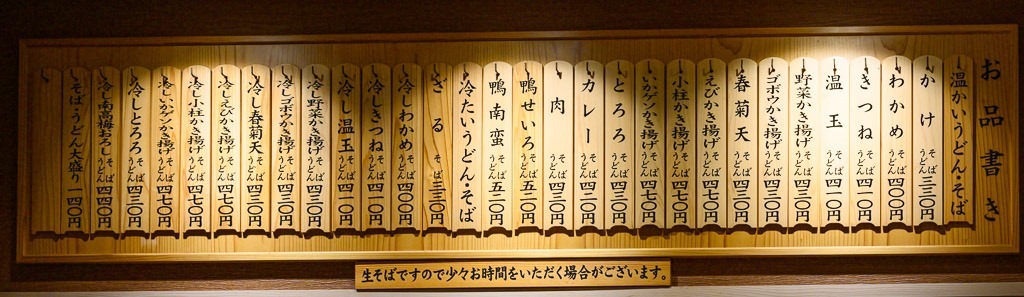 お品書き
温かいうどん・そば
かけ そばうどん 三三〇円
わかめ そばうどん 四〇〇円
きつね そばうどん 四一〇円
温玉 そばうどん 四一〇円
野菜かき揚げ そばうどん 四三〇円
ゴボウかき揚げ そばうどん 四三〇円
春菊天 そばうどん 四三〇円
えびかき揚げ そばうどん 四七〇円
小柱かき揚げ そばうどん 四七〇円
いかゲンかき揚げ そばうどん 四七〇円
とろろ そばうどん 四三〇円
カレー そばうどん 四三〇円
肉 そばうどん 四三〇円
鴨せいろ そばうどん 五二〇円
鴨南蛮 そばうどん 五二〇円
冷たいうどん・そば
ざる そば 三三〇円
冷しわかめ そばうどん 四〇〇円
冷しきつね そばうどん 四一〇円
冷し温玉 そばうどん 四一〇円
冷し野菜かき揚げ そばうどん 四三〇円
冷しゴボウかき揚げ そばうどん 四三〇円
冷し春菊天 そばうどん 四三〇円
冷しえびかき揚げ そばうどん 四七〇円
冷し小柱かき揚げ そばうどん 四七〇円
冷しいかゲンかき揚げ そばうどん 四七〇円
冷しとろろ そばうどん 四三〇円
冷し南高梅おろし そばうどん 四四〇円
そば・うどん大盛り 一四〇円
生そばですので少々お時間をいただく場合がございます。